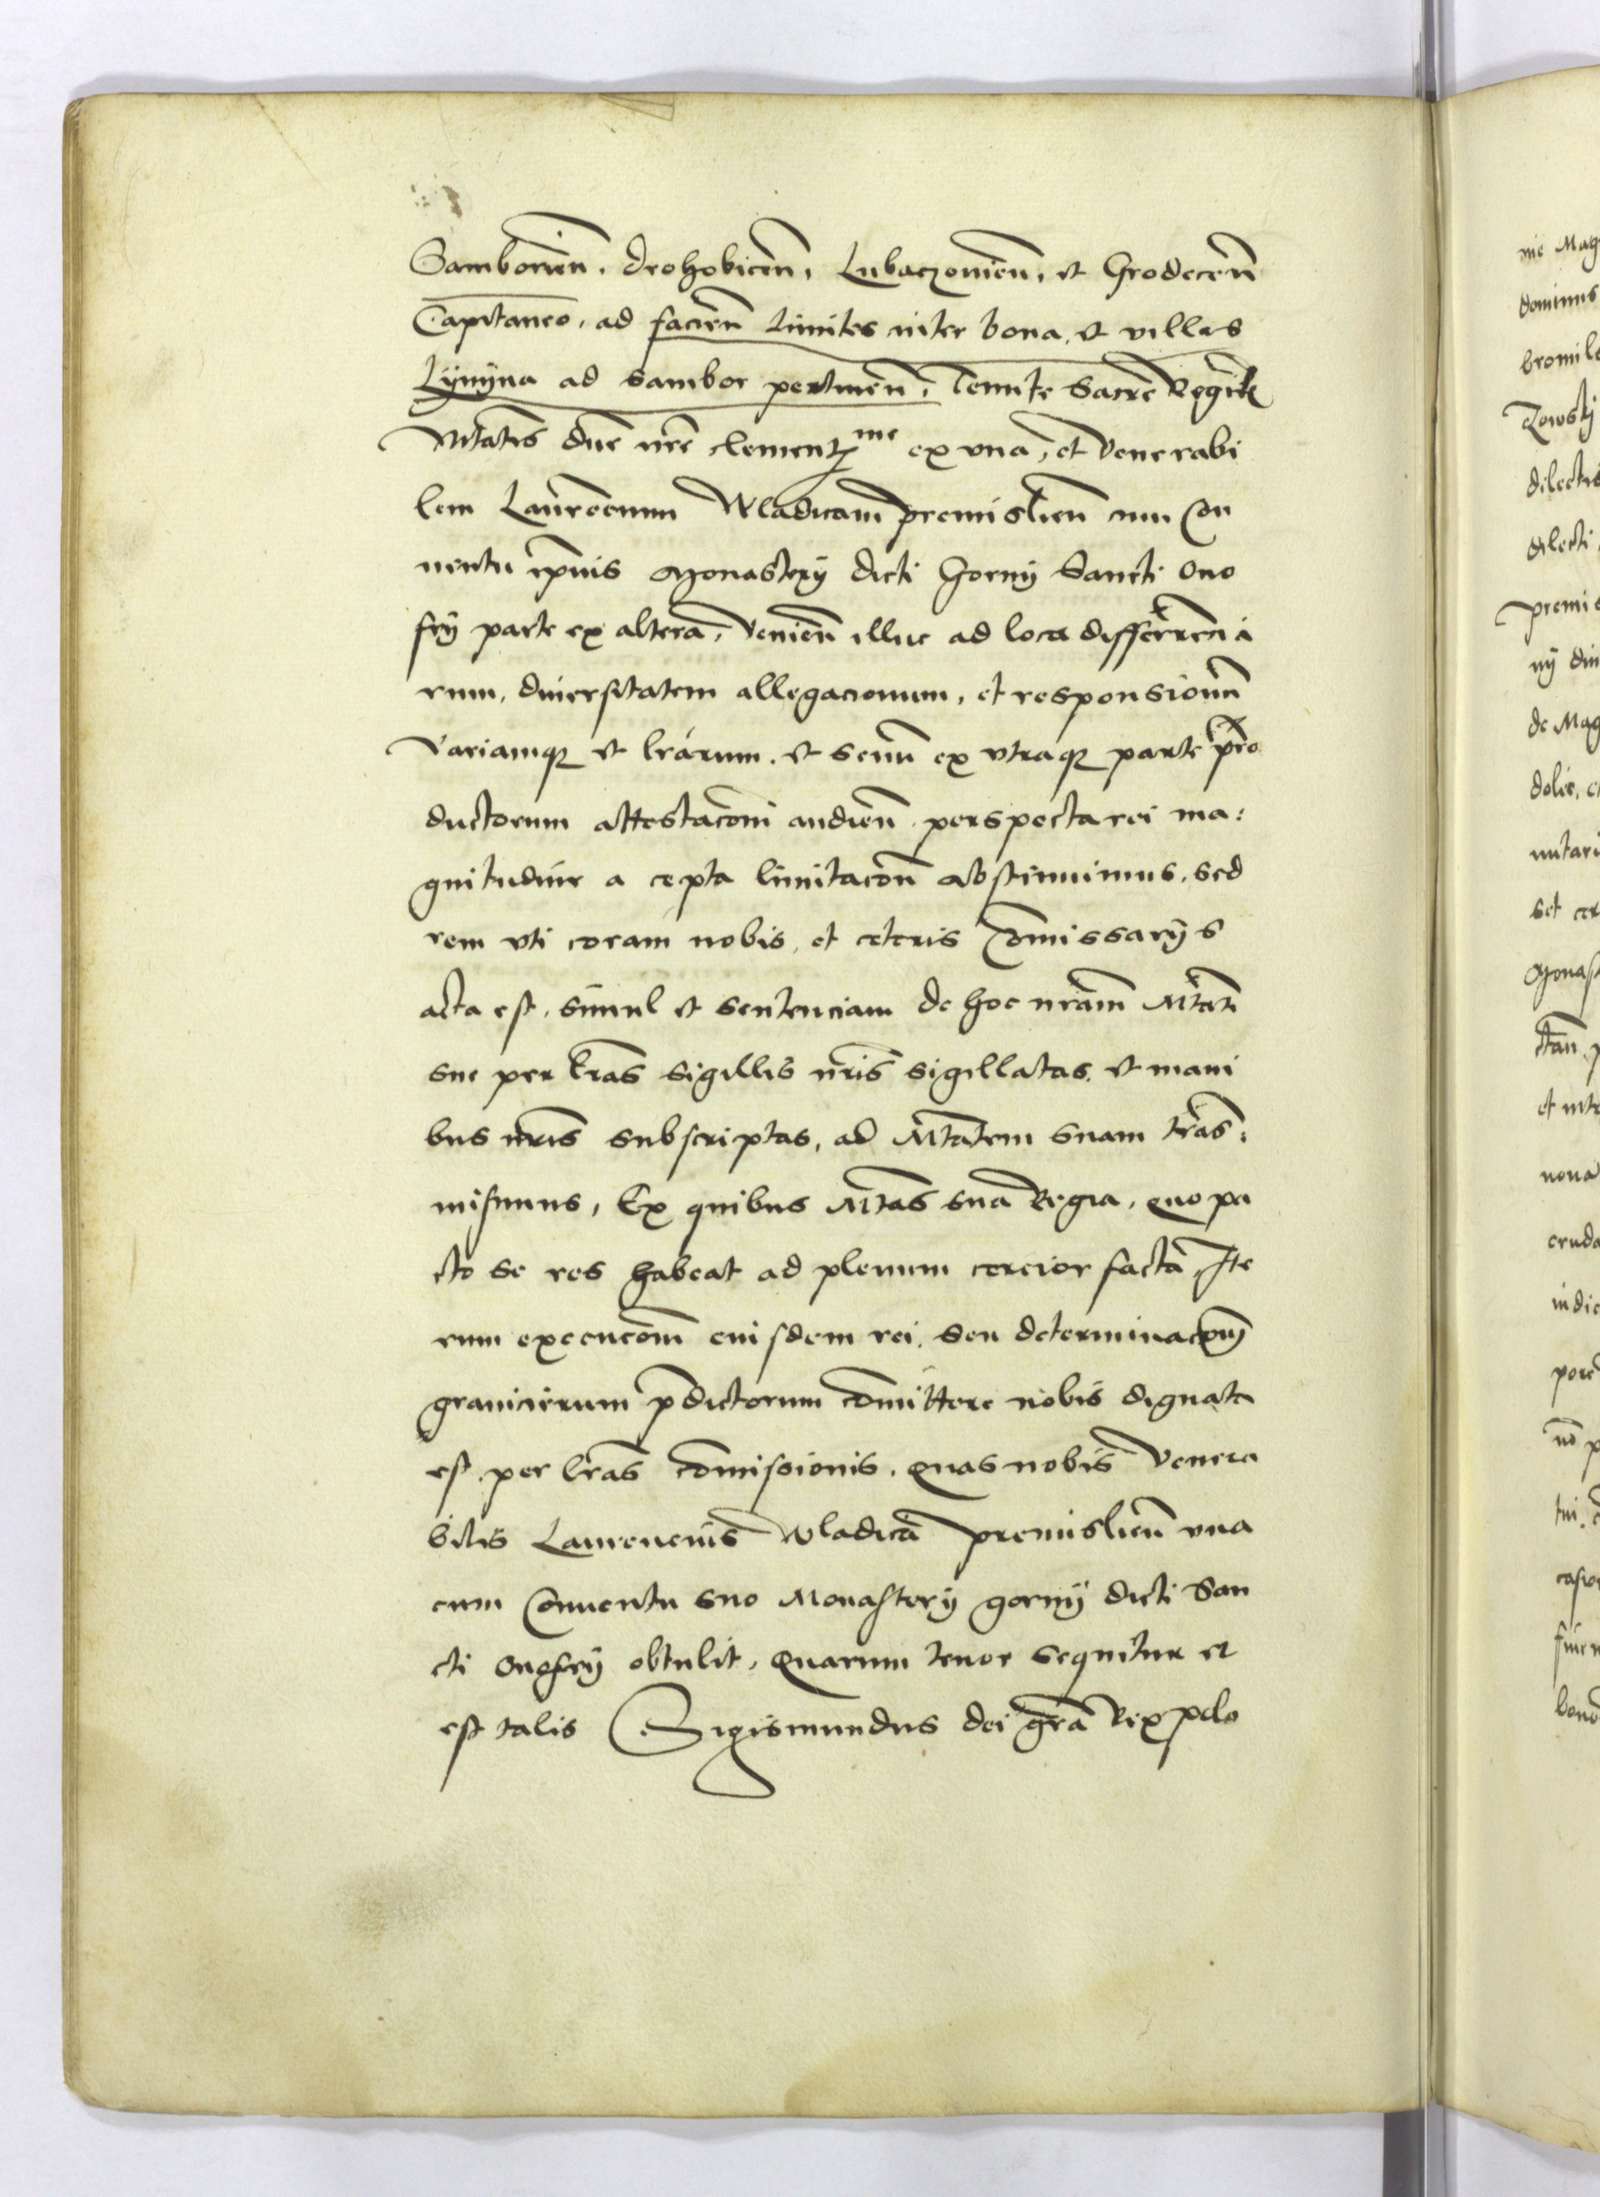 Samborien̄. drohobicen̄, Lubaczouien̄, et Grodecen̄
Capitaneo, ad facien̄ Limites inter bona, et villas
Lÿnÿna ad Sambor pertinen̄,
ntatis dn̄e nr̄e clement me ex vna, et venerabi
lem Laurecium Wladicam premislien̄ cum Con
uentu Monasterÿ dicti Gornÿ Sancti Ono
frÿ parte ex altera, venien̄ illuc ad loca differencia
rum, diuersitatem allegacionum, et responsionū
variamqꝫ et lr̄arum, et senū ex vtraqꝫ parte pro
ductorum attestacōm audien̄ perspecta rei ma:
gnitudine a cepta limitacōn̄ abstinuimus, sed
rem vti coram nobis, et ceteris Com̄issarÿs
acta est, simul et sentenciam de hoc nr̄am Mtati
sue per lr̄as sigillis nr̄is sigillatas, et mani
bus nr̄is subscriptas, ad Mtatem suam tras:
misimus, Ex quibus Mtas sua Regia, quo pa
cto se res habeat ad plenum cercior facta Ite
rum execucōm eiusdem rei, seu determinacōm
granicierum p̄dictorum com̄ittere nobis dignata
est per lr̄as com̄issionis, quas nobis venera
bilis Laurencius Wladica premislien̄ vna
cum Conuentu suo Monasterÿ gornÿ dicti San
cti Onofrÿ obtulit, Quarum tenor sequitur et
est talis Sigismundus dei gr̄a Rex polo
dominus
dilecti
Premis
nÿ
de Mag
et
noua